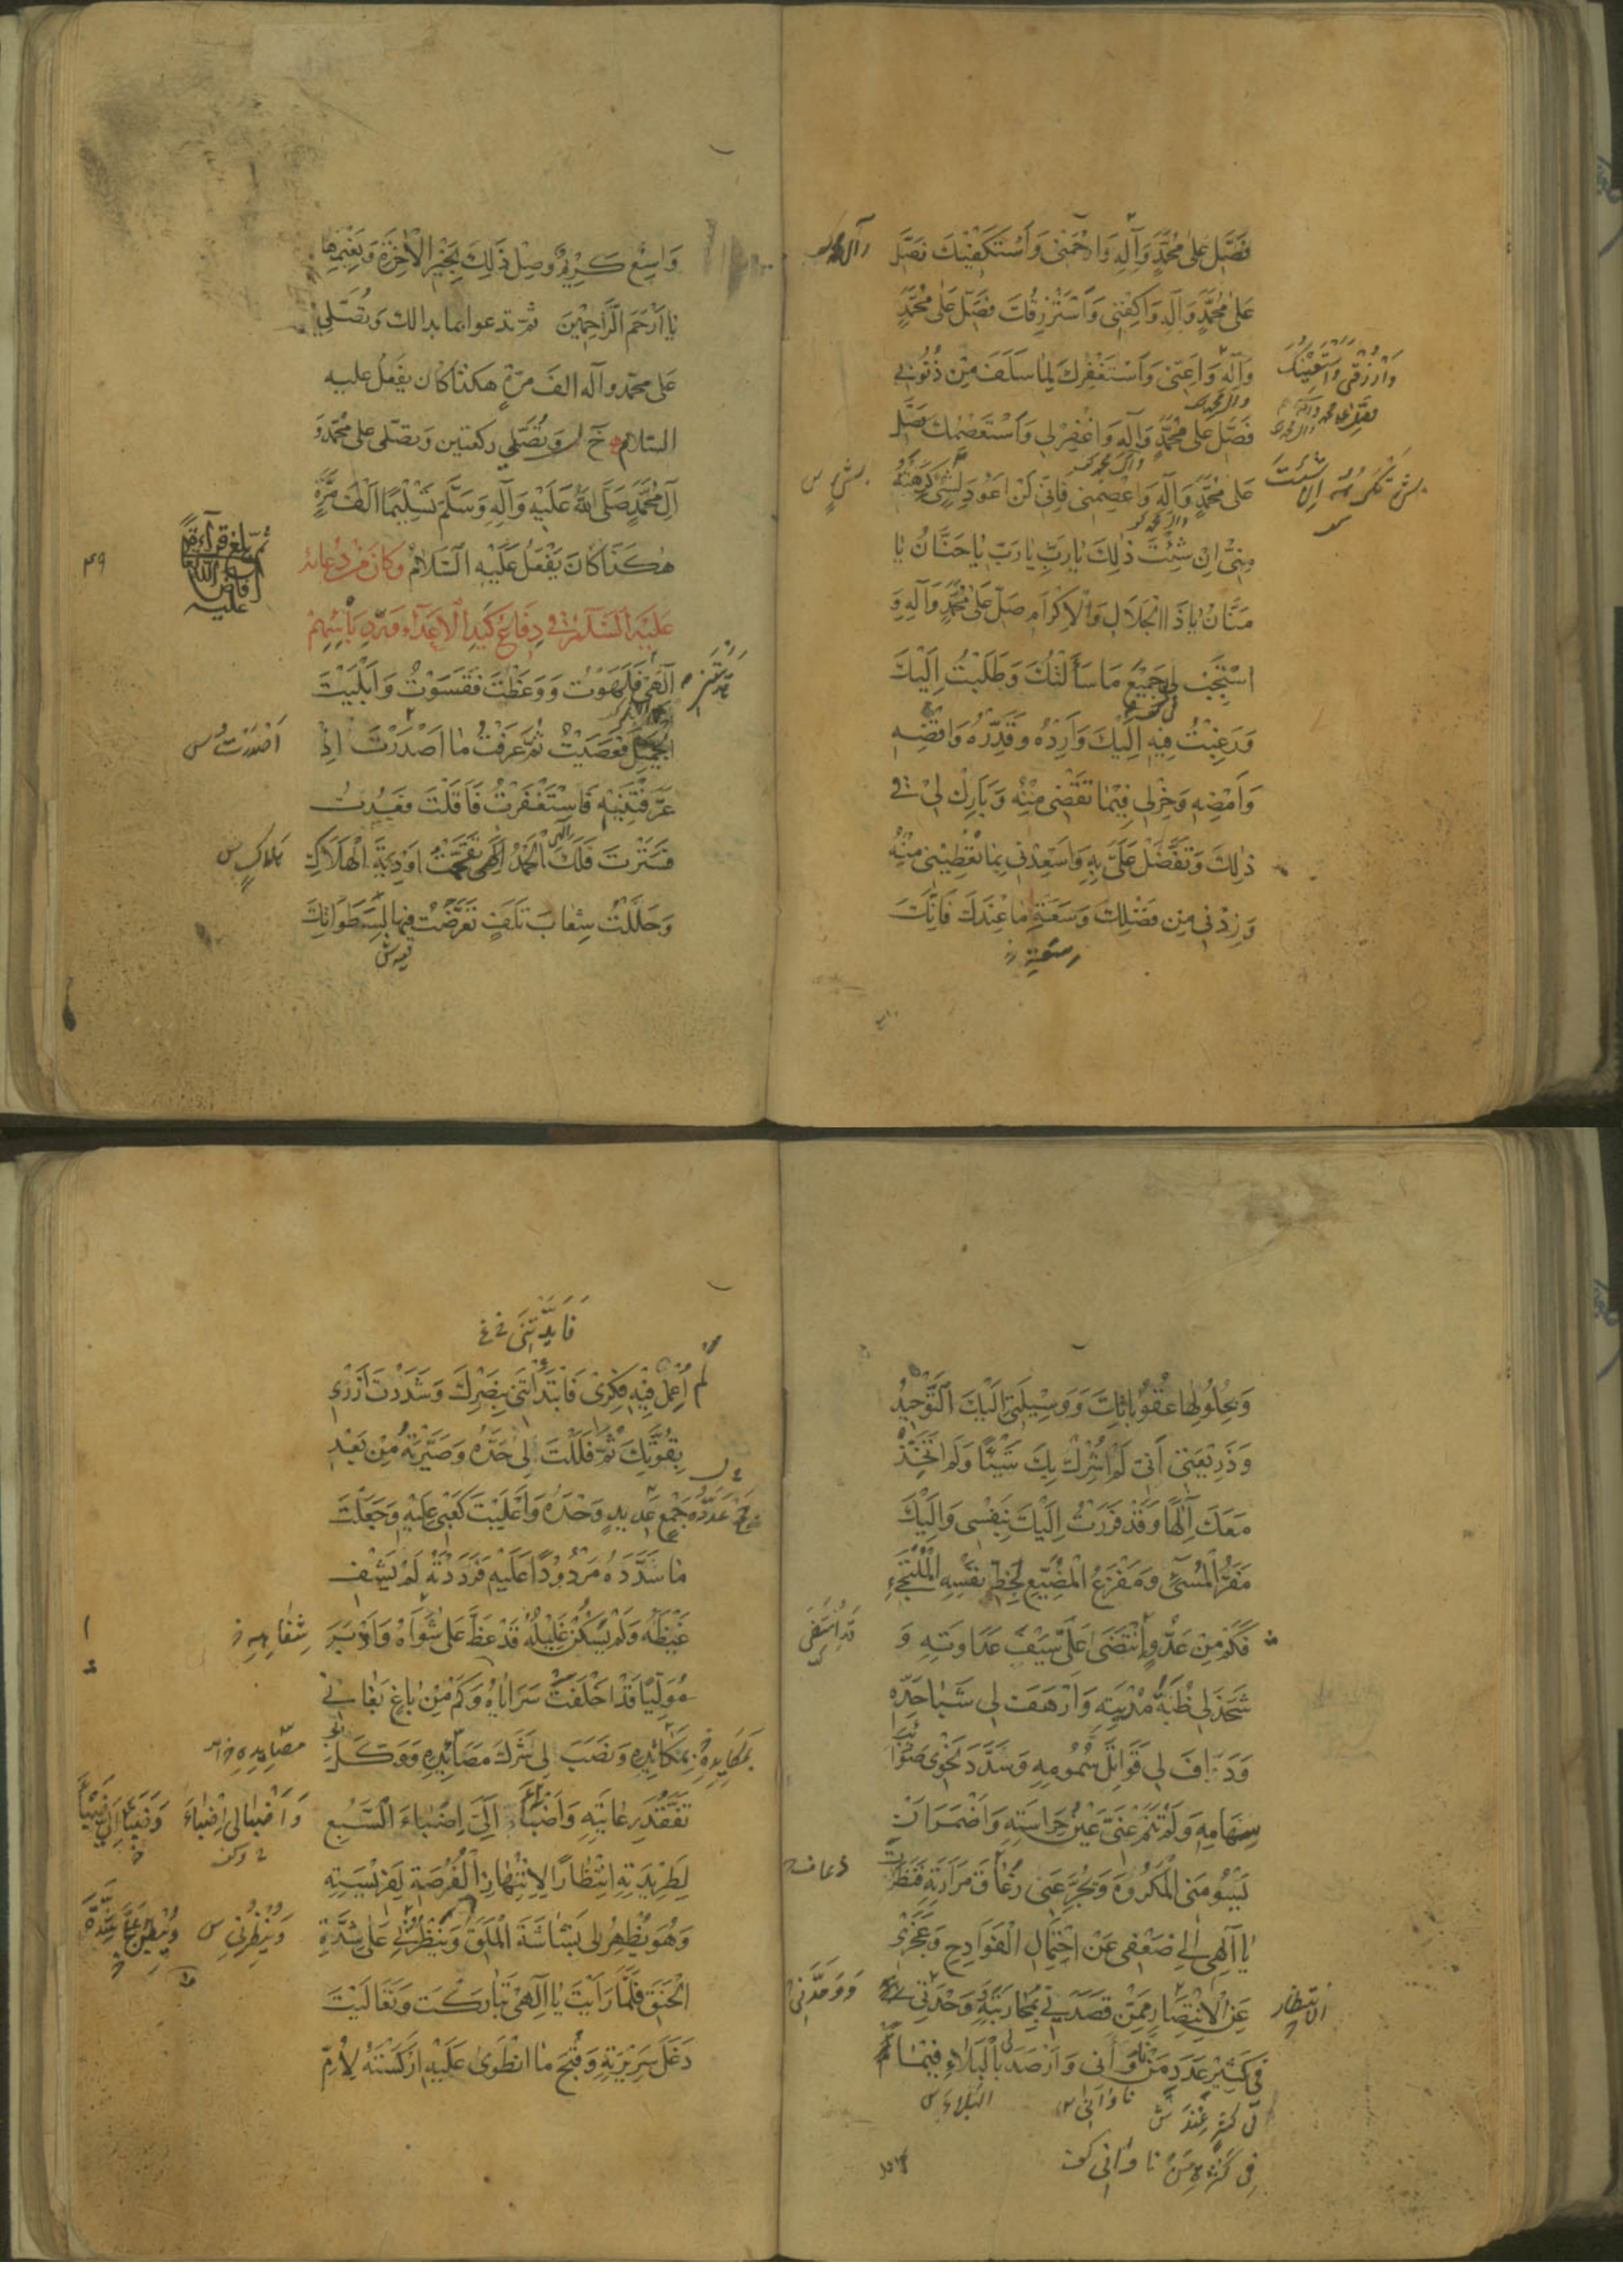 فَصَلِّ عَلَىٰ مُحَمَّدٍ وَآلِهِ وَارْحَمْنِي وَأَسْتَكْفِيكَ فَصَلِّ
عَلَىٰ مُحَمَّدٍ وَآلِهِ وَاكْفِنِي وَأَسْتَرْزِقُكَ فَصَلِّ عَلَىٰ مُحَمَّدٍ
وَارْزُقْنِي وَأَسْتَعِينُكَ
وَآلِهِ وَأَعِنِّي وَأَسْتَغْفِرُكَ لِمَا سَلَفَ مِنْ ذُنُوبِي
فَصَلِّ عَلَىٰ مُحَمَّدٍ وَآلِهِ وَاغْفِرْ لِي وَأَسْتَعْصِمُكَ فَصَلِّ
عَلَىٰ مُحَمَّدٍ وَآلِهِ وَاعْصِمْنِي فَإِنِّي لَنْ أَعُودَ لِشَيْءٍ كَرِهْتَهُ
مِنِّي إِنْ شِئْتَ ذٰلِكَ يَا رَبِّ يَا رَبِّ يَا حَنَّانُ يَا
مَنَّانُ يَا ذَا الْجَلَالِ وَالْإِكْرَامِ صَلِّ عَلَىٰ مُحَمَّدٍ وَآلِهِ وَ
اسْتَجِبْ لِي جَمِيعَ مَا سَأَلْتُكَ وَطَلَبْتُ إِلَيْكَ
وَرَغِبْتُ فِيهِ إِلَيْكَ وَأَرِدْهُ وَقَدِّرْهُ وَاقْضِهِ
وَأَمْضِهِ وَخِرْ لِي فِيمَا تَقْضِي مِنْهُ وَبَارِكْ لِي فِي
ذٰلِكَ وَتَفَضَّلْ عَلَيَّ بِهِ وَأَسْعِدْنِي بِمَا تُعْطِينِي مِنْهُ
وَزِدْنِي مِنْ فَضْلِكَ وَسَعَةِ مَا عِنْدَكَ فَإِنَّكَ
وَاسِعٌ كَرِيمٌ وَصِلْ ذٰلِكَ بِخَيْرِ الْآخِرَةِ وَنَعِيمِهَا
يَا أَرْحَمَ الرَّاحِمِينَ ثُمَّ تدعوا بما بدا لك وَتُصَلِّي
على محمد وآله الف مرّةٍ هكذا كان يفعل عليه
السّلام خ ل وتُصَلّي ركعتين وتصلّى على مُحَمَّدٍ وَ
آلِ مُحَمَّدٍ صَلَّى اللهُ عَلَيْهِ وَآلِهِ وَسَلَّمَ تَسْلِيمًا أَلْفَ مَرَّةٍ
هٰكَذَا كَانَ يَفْعَلُ عَلَيْهِ السَّلَامُ وَكَانَ مِنْ دُعَائِهِ
عَلَيْهِ السَّلَامُ فِي دِفَاعِ كَيْدِ الْأَعْدَاءِ وَرَدِّ بَأْسِهِمْ
إِلٰهِي هَدَيْتَنِي فَلَهَوْتُ وَوَعَظْتَ فَقَسَوْتُ وَأَبْلَيْتَ
الْجَمِيلَ فَعَصَيْتُ ثُمَّ عَرَفْتُ مَا أَصْدَرْتَ إِذْ
أَصْدَرْتُ س
عَرَّفْتَنِيهِ فَاسْتَغْفَرْتُ فَأَقَلْتَ فَعُدْتُ
فَسَتَرْتَ فَلَكَ الْحَمْدُ إِلٰهِي تَقَحَّمْتُ أَوْدِيَةَ الْهَلَاكِ
وَحَلَلْتُ شِعَابَ تَلَفٍ تَعَرَّضْتُ فِيهَا لِسَطَوَاتِكَ
وَبِحُلُولِهَا عُقُوبَاتِكَ وَوَسِيلَتِي إِلَيْكَ التَّوْحِيدُ
وَذَرِيعَتِي أَنِّي لَمْ أُشْرِكْ بِكَ شَيْئًا وَلَمْ أَتَّخِذْ
مَعَكَ إِلٰهًا وَقَدْ فَرَرْتُ إِلَيْكَ بِنَفْسِي وَإِلَيْكَ
مَفَرُّ الْمُسِيءِ وَمَفْزَعُ الْمُضَيِّعِ لِحَظِّ نَفْسِهِ الْمُلْتَجِئِ
فَكَمْ مِنْ عَدُوٍّ انْتَضَىٰ عَلَيَّ سَيْفَ عَدَاوَتِهِ وَ
شَحَذَ لِي ظُبَةَ مُدْيَتِهِ وَأَرْهَفَ لِي شَبَا حَدِّهِ
وَدَافَ لِي قَوَاتِلَ سُمُومِهِ وَسَدَّدَ نَحْوِي صَوَائِبَ
سِهَامِهِ وَلَمْ تَنَمْ عَنِّي عَيْنُ حِرَاسَتِهِ وَأَضْمَرَ أَنْ
يَسُومَنِي الْمَكْرُوهَ وَيُجَرِّعَنِي زُعَاقَ مَرَارَتِهِ فَنَظَرْتَ
يَا إِلٰهِي إِلَىٰ ضَعْفِي عَنِ احْتِمَالِ الْفَوَادِحِ وَعَجْزِي
عَنِ الْاِنْتِصَارِ مِمَّنْ قَصَدَنِي بِمُحَارَبَتِهِ وَوَحْدَتِي
فِي كَثِيرِ عَدَدِ مَنْ نَاوَانِي وَأَرْصَدَ لِي بِالْبَلَاءِ فِيمَا
الْبَلَاءَ س
فَأَيَّدْتَنِي
لَمْ أُعْمِلْ فِيهِ فِكْرِي فَابْتَدَأْتَنِي بِنَصْرِكَ وَشَدَدْتَ أَزْرِي
بِقُوَّتِكَ ثُمَّ فَلَلْتَ لِي حَدَّهُ وَصَيَّرْتَهُ مِنْ بَعْدِ
جَمْعٍ عَدِيدٍ وَحْدَهُ وَأَعْلَيْتَ كَعْبِي عَلَيْهِ وَجَعَلْتَ
مَا سَدَّدَهُ مَرْدُودًا عَلَيْهِ فَرَدَدْتَهُ لَمْ يَشْفِ
غَيْظَهُ وَلَمْ يَسْكُنْ غَلِيلُهُ قَدْ عَضَّ عَلَىٰ شَوَاهُ وَأَدْبَرَ
مُوَلِّيًا قَدْ أَخْلَفَتْ سَرَايَاهُ وَكَمْ مِنْ بَاغٍ بَغَانِي
بِمَكَائِدِهِ وَنَصَبَ لِي شَرَكَ مَصَائِدِهِ وَوَكَّلَ
تَفَقُّدَ رِعَايَتِهِ وَأَضْبَأَ إِلَيَّ إِضْبَاءَ السَّبُعِ
لِطَرِيدَتِهِ انْتِظَارًا لِانْتِهَازِ الْفُرْصَةِ لِفَرِيسَتِهِ
وَهُوَ يُظْهِرُ لِي بَشَاشَةَ الْمَلَقِ وَيَنْظُرُنِي عَلَىٰ شِدَّةِ
الْحَنَقِ فَلَمَّا رَأَيْتَ يَا إِلٰهِي تَبَارَكْتَ وَتَعَالَيْتَ
دَغَلَ سَرِيرَتِهِ وَقُبْحَ مَا انْطَوَىٰ عَلَيْهِ أَرْكَسْتَهُ لِأُمِّ